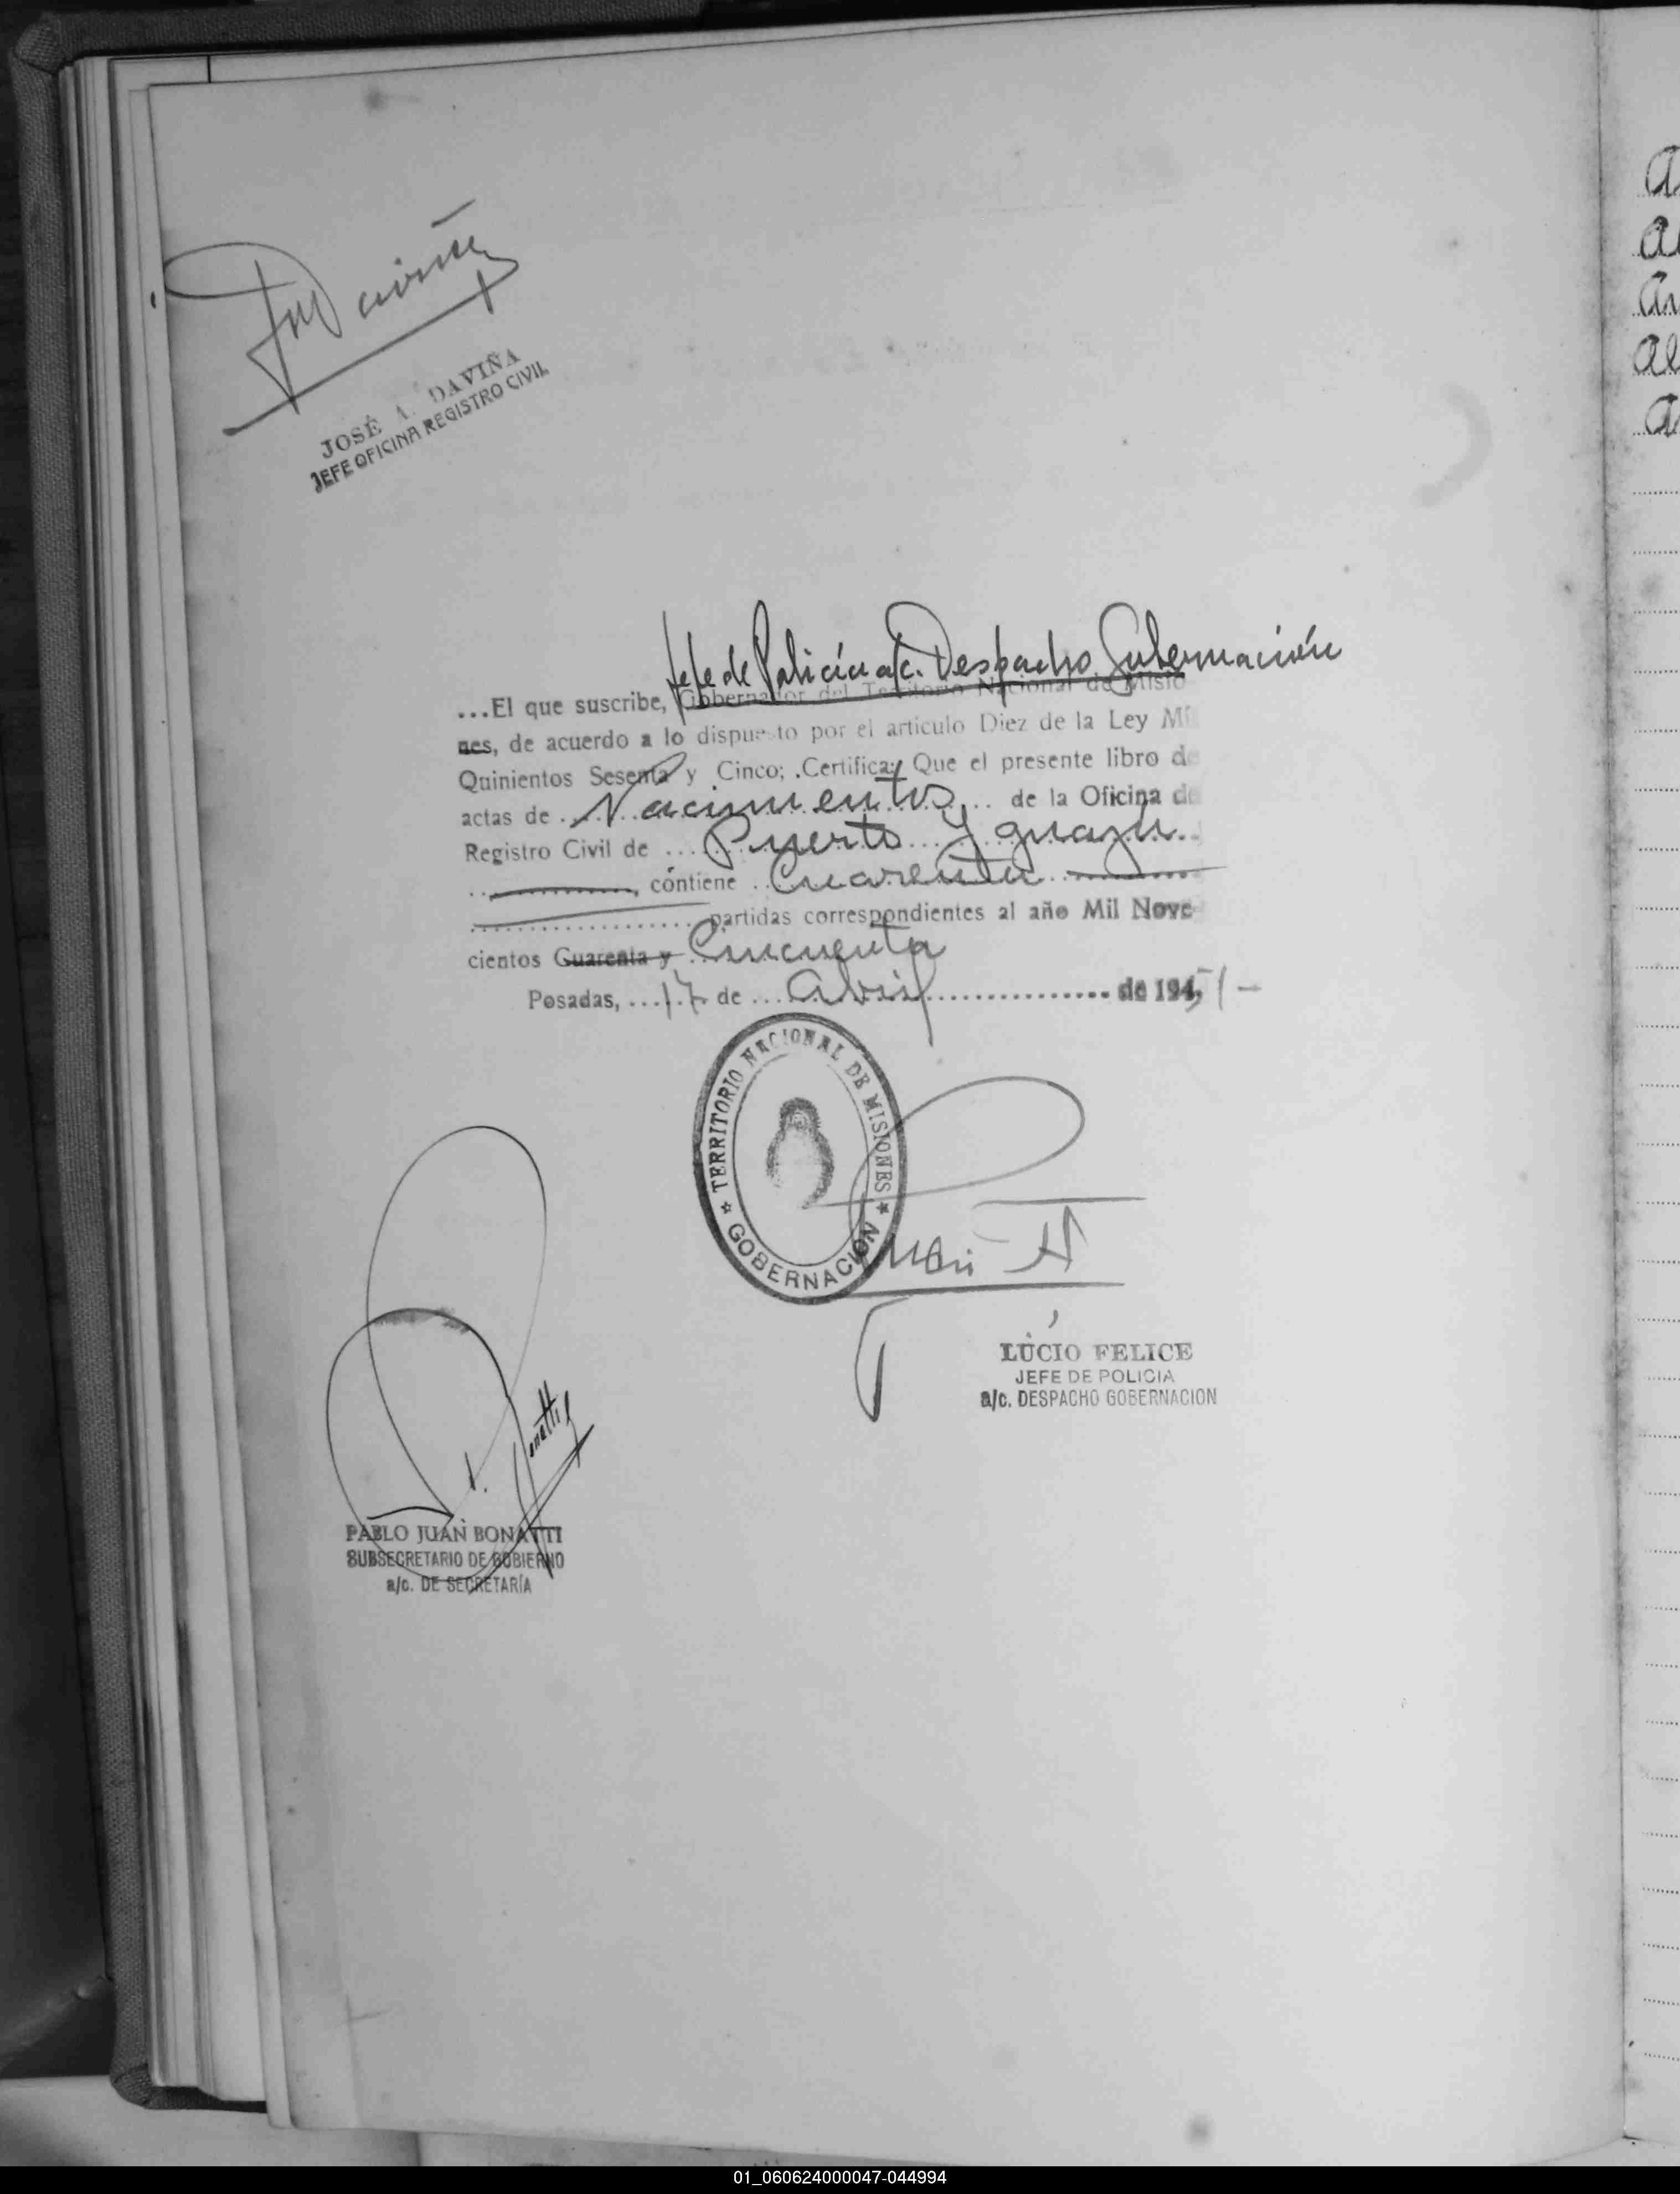 JOSÉ A. DAVIÑA
JEFE OFICINA REGISTRO CIVIL
Jefe de Policía a/c. Despacho Gobernación
...El que suscribe, Gobernador del Territorio Nacional de Misio
nes, de acuerdo a lo dispuesto por el artículo Diez de la Ley Mil
Quinientos Sesenta y Cinco; Certifica: Que el presente libro de
actas de Nacimientos de la Oficina de
Registro Civil de Puerto Yguazú
contiene Cuarenta
partidas correspondientes al año Mil Nove
cientos Cuarenta y Cincuenta
Posadas, 17 de Abril de 1951
TERRITORIO NACIONAL DE MISIONES
GOBERNACION
LUCIO FELICE
JEFE DE POLICIA
a/c. DESPACHO GOBERNACION
PABLO JUAN BONATTI
SUBSECRETARIO DE GOBIERNO
a/c. DE SECRETARÍA
01_060624000047-044994